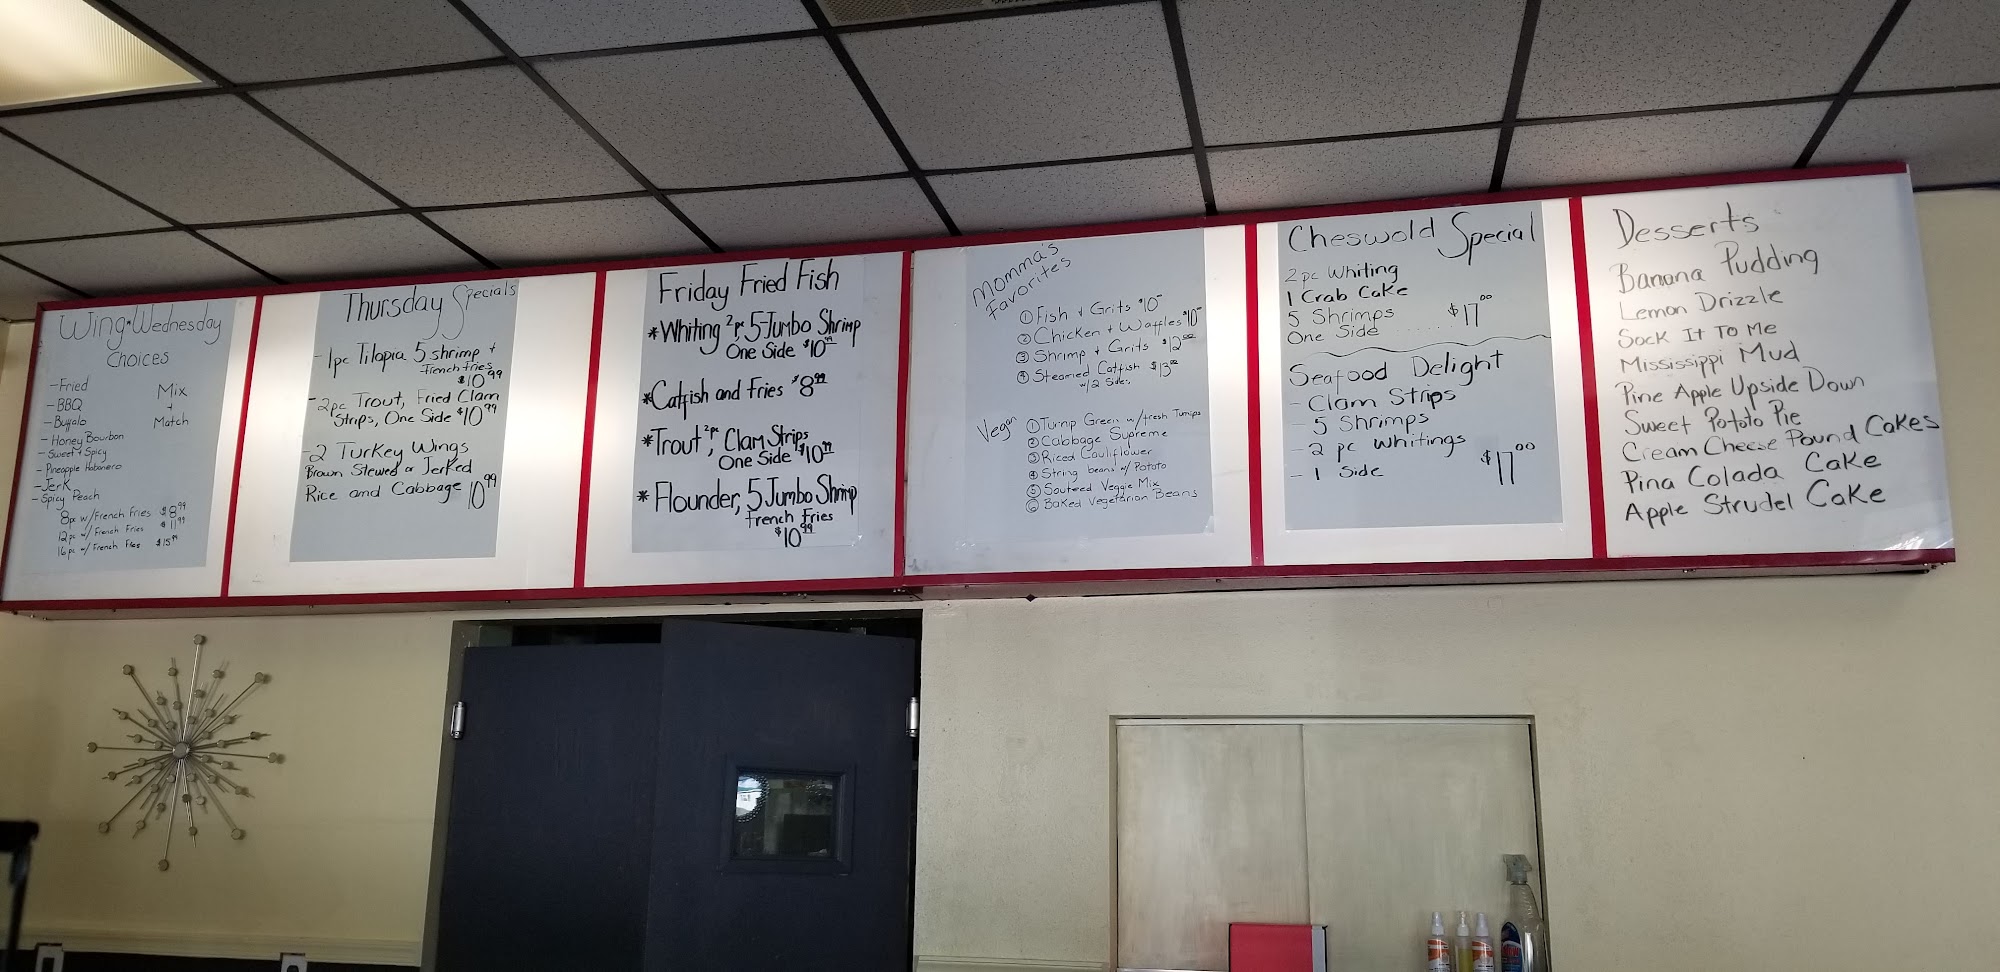 Wing Wednesday
Choices
- Fried
- BBQ
- Buffalo
- Honey Bourbon
- Sweet & Spicy
- Pineapple Habanero
- Jerk
- Spicy Peach
Mix
+
Match
8pc w/French Fries $8.99
12pc w/French Fries $11.99
16pc w/French Fries $15.99
Thursday Specials
- 1pc Tilapia 5 shrimp +
French fries
$10.99
- 2pc Trout, Fried Clam
Strips, One Side $10.99
- 2 Turkey Wings
Brown Stewed or Jerked
Rice and Cabbage 10.99
Friday Fried Fish
* Whiting 2pc, 5 Jumbo Shrimp
One Side $10.99
* Catfish and Fries $8.99
* Trout 2pc, Clam Strips
One Side $10.99
* Flounder, 5 Jumbo Shrimp
French Fries
$10.99
Momma's
Favorites
① Fish + Grits $10
② Chicken + Waffles $10
③ Shrimp + Grits $12.00
④ Steamed Catfish $13.00
w/2 Sides
Vegan
① Turnip Green w/fresh Turnips
② Cabbage Supreme
③ Riced Cauliflower
④ String beans w/ Potato
⑤ Sauteed Veggie Mix
⑥ Baked Vegetarian Beans
Cheswold Special
2pc Whiting
1 Crab Cake
5 Shrimps
One Side ..... $17.00
Seafood Delight
- Clam Strips
- 5 Shrimps
- 2 pc Whitings
- 1 Side $17.00
Desserts
Banana Pudding
Lemon Drizzle
Sock It To Me
Mississippi Mud
Pine Apple Upside Down
Sweet Potato Pie
Cream Cheese Pound Cakes
Pina Colada Cake
Apple Strudel Cake